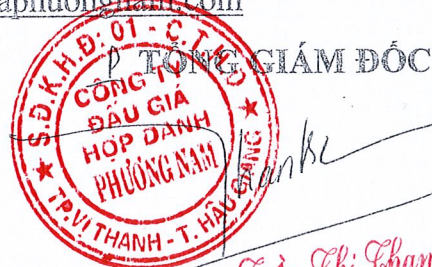 aphuongnam.com
P TỔNG GIÁM ĐỐC
S.Đ.K.H.Đ: 01 - C.T.
CÔNG TY
ĐẤU GIÁ
HỢP DANH
PHƯƠNG NAM
TP.VỊ THANH - T. HẬU GIANG